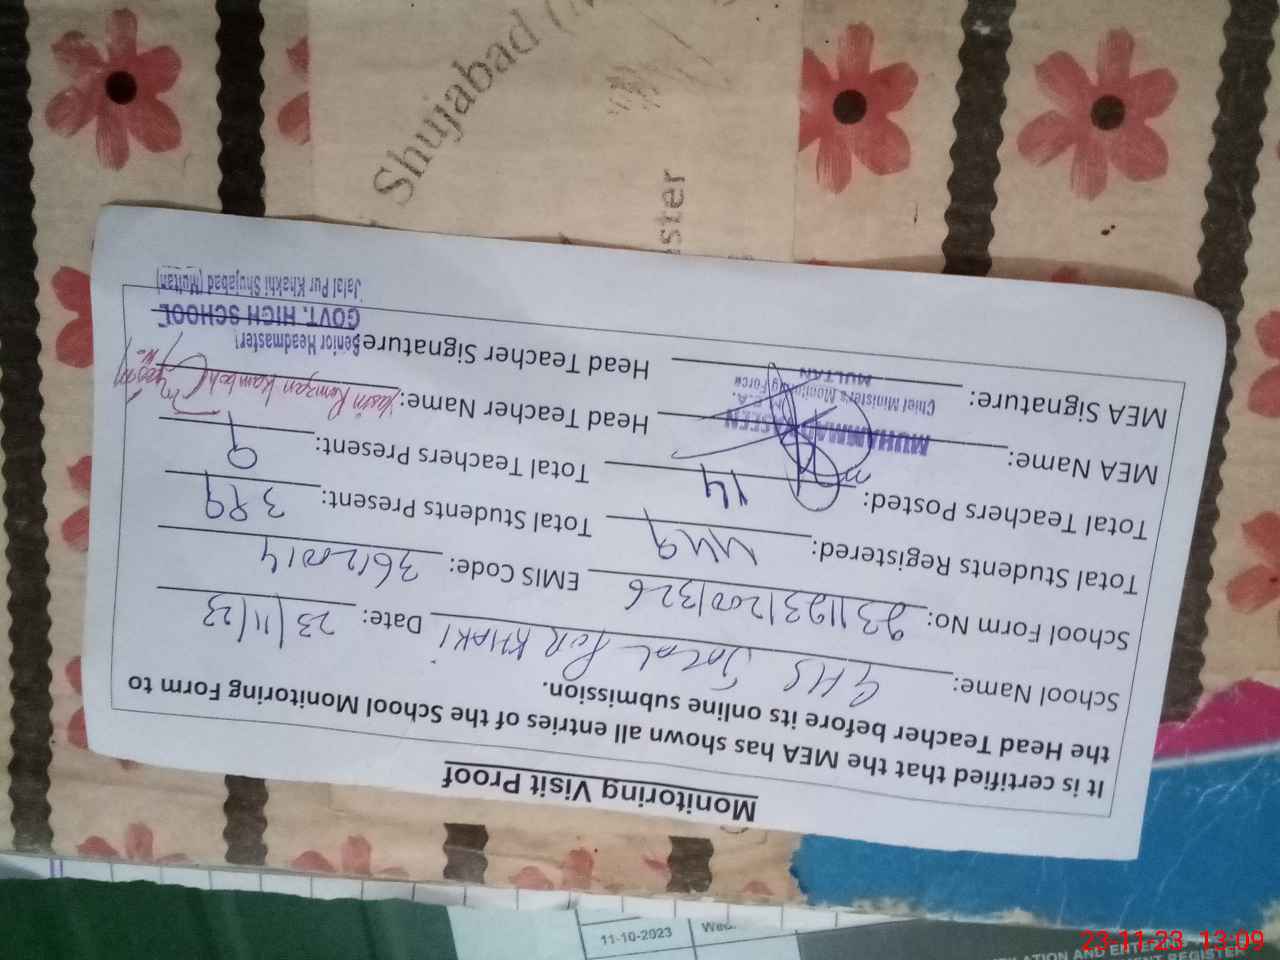 Monitoring Visit Proof
It is certified that the MEA has shown all entries of the School Monitoring Form to
the Head Teacher before its online submission.
School Name: GHS Jalal PUR KHAKI Date: 23/11/23
School Form No: 23112312001326 EMIS Code: 36120014
Total Students Registered: 449 Total Students Present: 389
Total Teachers Posted: 14 Total Teachers Present: 9
MEA Name: MUHAMMAD Head Teacher Name: Yasin Ramzan Kamboh
Chief Minister's Monitoring Force
MULTAN
MEA Signature: Head Teacher Signature:
Senior Headmaster
GOVT. HIGH SCHOOL
Jalal Pur Khakhi Shujabad (Multan)
Shujabad
11-10-2023
23-11-23 13:09